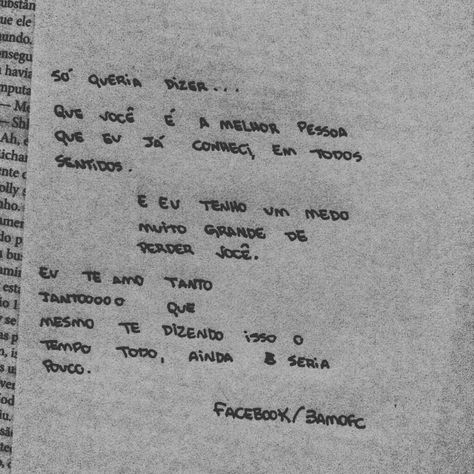 ubstân
ue ele
undo.
onsegu
havia
mputa
— Me
— Shi
Ah, e
ichar
ente c
olly s
nho.
amer
do p
bus
amin
esta
io l
y se
as p
n, is
s u
ver
iod
iu.
são
SÓ QUERIA DIZER...
QUE VOCÊ É A MELHOR PESSOA
QUE EU JÁ CONHECI, EM TODOS
SENTIDOS.
E EU TENHO UM MEDO
MUITO GRANDE DE
PERDER VOCÊ.
EU TE AMO TANTO
TANTOOOO QUE
MESMO TE DIZENDO ISSO O
TEMPO TODO, AINDA SERIA
POUCO.
FACEBOOK/3AMOFC